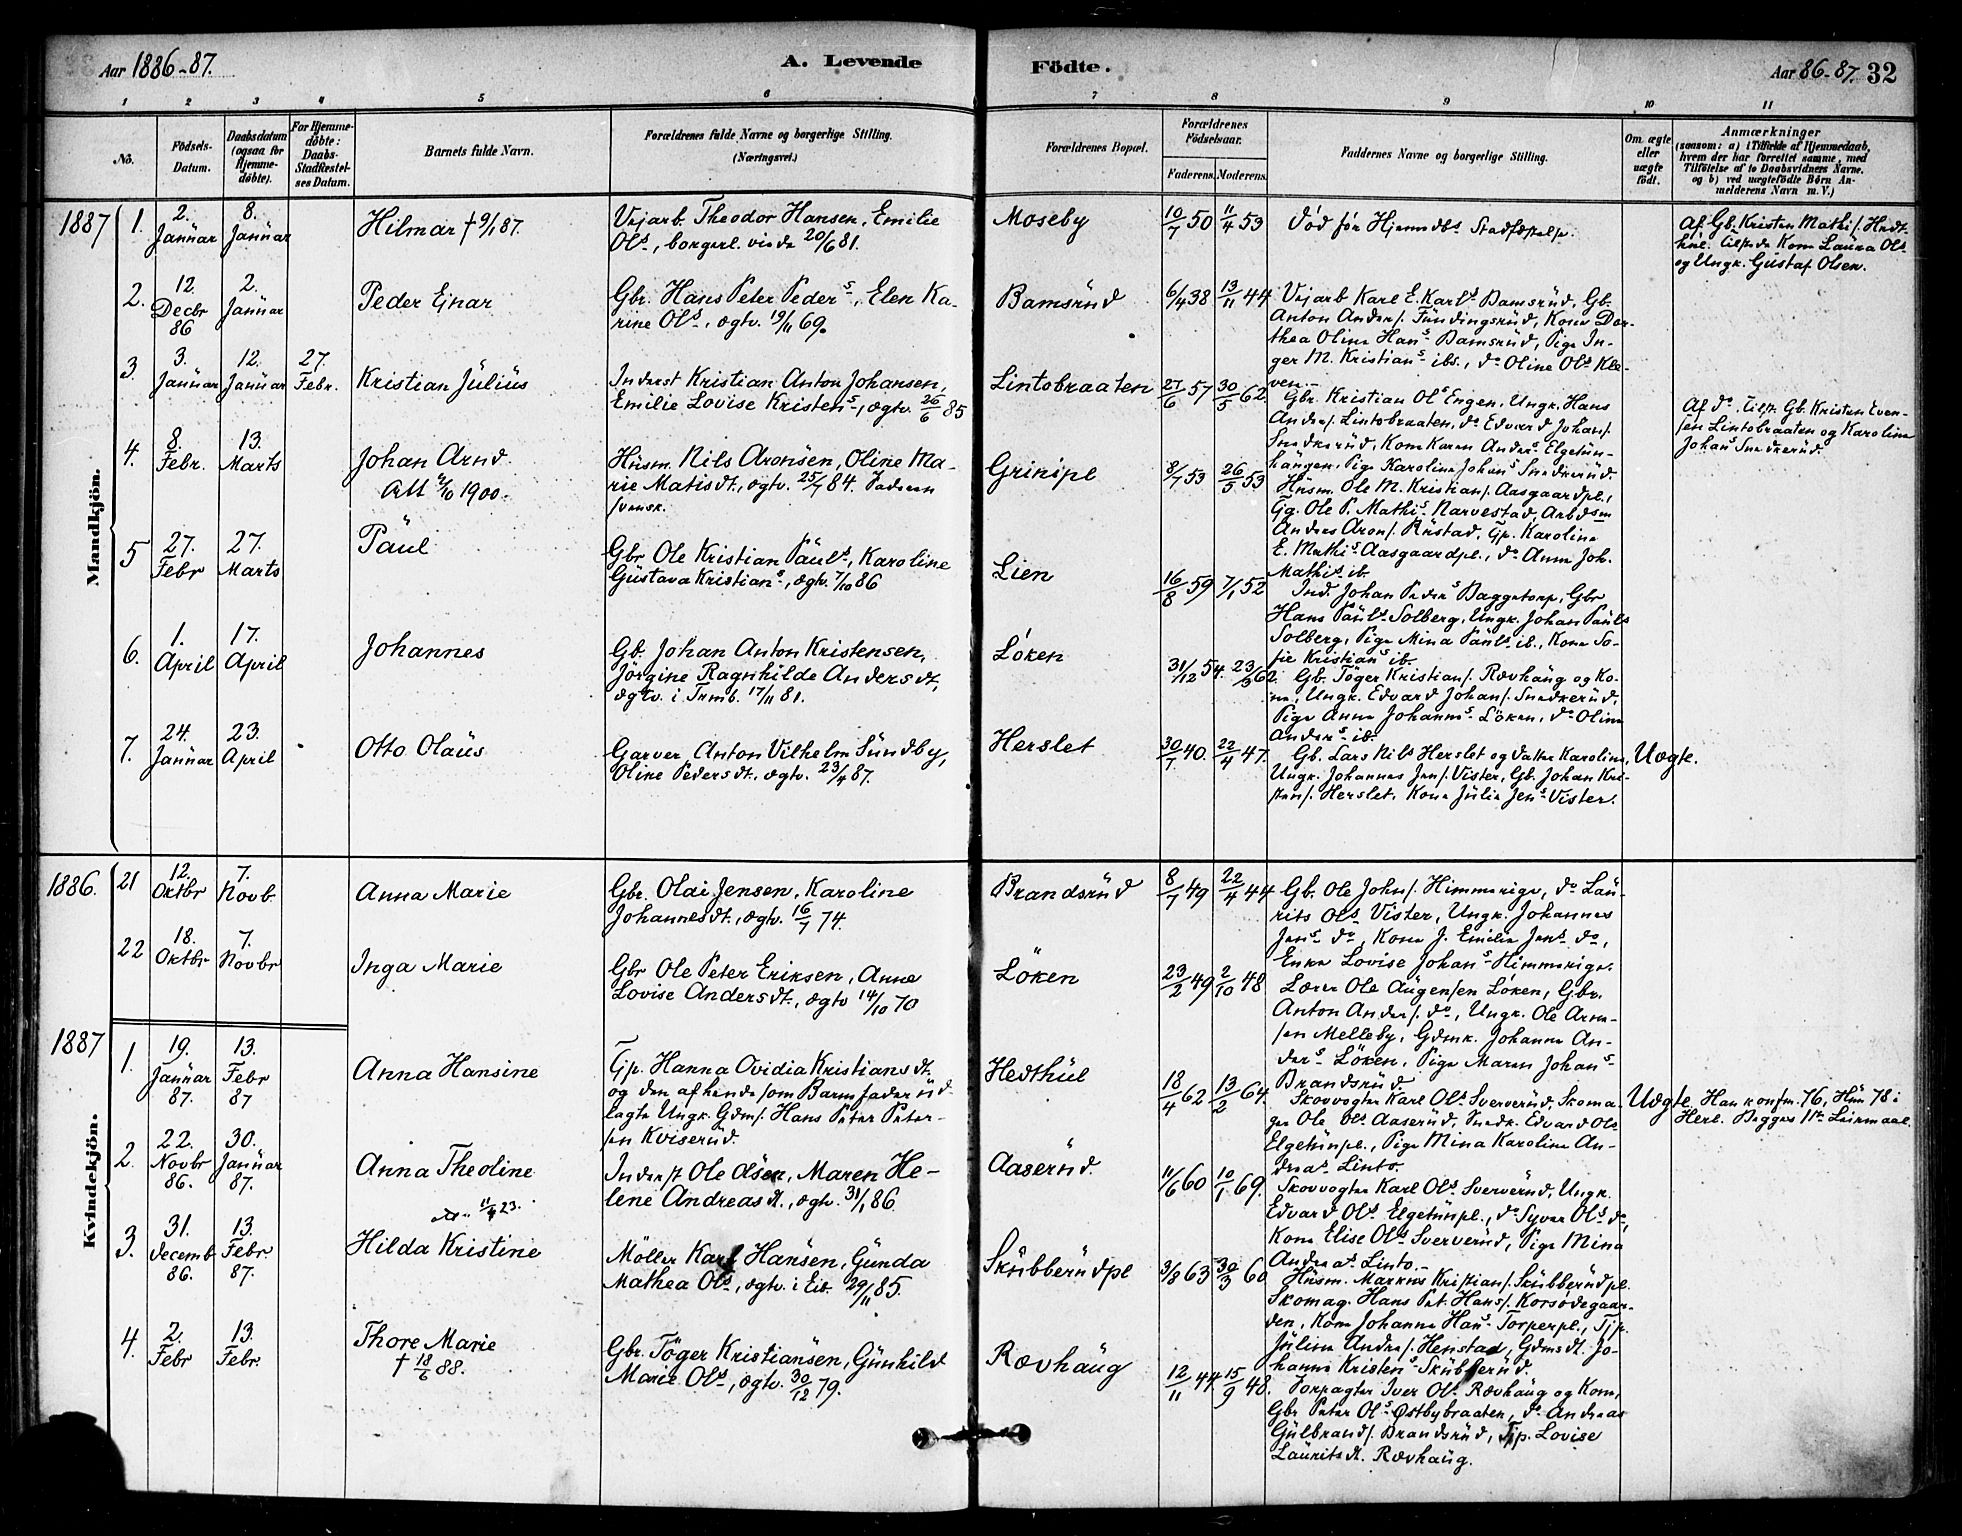 Aar 1886-87.
A. Levende
Födte.
Aar 86-87. 32
1 2 3 4 5 6 7 8 9 10 11
No.
Födsels-Datum.
Daabsdatum (ogsaa for Hjemme-döbte).
For Hjemme-döbte: Daabs-Stadfæstel-ses Datum.
Barnets fulde Navn.
Forældrenes fulde Navne og borgerlige Stilling. (Næringsvei.)
Forældrenes Bopæl.
Forældrenes Födselsaar.
Faderens. Moderens.
Faddernes Navne og borgerlige Stilling.
Om ægte eller uægte födt.
Anmærkninger
(saasom: a) i Tilfælde af Hjemmedaab,
hvem der har forrettet samme, med
Tilföielse af to Daabsvidners Navne.
og b) ved uægtefödte Börn An-
melderens Navn m. V.)
Mandkjön.
1887
1. 2. Januar 8. Januar
Hilmar † 9/1 87.
Vejarb. Theodor Hansen, Emilie
Ols, borgerl. viede 20/6 81.
Moseby
10/7 50 11/4 53
Död för Hjemmdbs Stadfæstelse.
Af Gb. Kristen Mathis. Hedt-
hül. Tilstede Kone Laura Ols
og Ungk. Gustaf Olsen.
2. 12. Decbr 86 2. Januar
Peder Ejnar
Gbr. Hans Peter Peders, Elen Ka-
rine Ols, ægtv. 19/11 69.
Bamsrüd
6/4 38 13/11 44
Vejarb Karl E. Karls Bamsrüd, Gb.
Anton Anders. Fundingsrüd, Kone Dor-
thea Oline Hans Bamsrüd, Pige In-
ger M. Kristians ibs., do Oline Ols Kle-
ven.
3. 3. Januar 12. Januar 27. Febr.
Kristian Julius
Inderst Kristian Anton Johansen,
Emilie Lovise Kristens, ægtv. 26/6 85
Lintobraaten
27/6 57 30/5 62.
Gbr. Kristian Ols Engen, Ungk. Hans
Anders. Lintobraaten, do Edvard Johans.
Snedkerüd, Kone Karen Anders Elgetun-
haugen, Pige Karoline Johans Snedkerüd.
Af do, Tilst. Gb. Kristen Even-
sen Lintobraaten og Karoline
Johans Snedkerüd.
4. 8. Febr. 13. Marts
Johan Arnd.
Att 2/10 1900.
Husm. Nils Aronsen, Oline Ma-
rie Matisdt., ægtv. 25/7 84. Faderen
svensk.
Grinipl
8/7 53 26/5 53
Husm. Ole M. Kristians. Aasgaardpl.,
Gg. Ole P. Mathis Narvestad, Arbdsm
Anders Arons. Rüstad, Gp. Karoline
E. Mathis Aasgaardpl., do Anna Joh.
Mathis ib.
5 27. Febr 27. Marts
Paul
Gbr Ole Kristian Pauls, Karoline
Gustava Kristians, ægtv. 7/10 86
Lien
16/8 59 7/1 52
Ind. Johan Peders Baggetorp, Gbr
Hans Pauls Solberg, Ungk. Johan Pauls
Solberg, Pige Mina Pauls ib., Kone So-
fie Kristians ib.
6. 1. April 17. April
Johannes
Gb. Johan Anton Kristensen,
Jörgine Ragnhilde Andersdt,
ægtv. i Trmb. 17/11 81.
Löken
31/12 54. 23/9 62.
Gb. Töger Kristians. Rævhaug og Ko-
ne, Ungk. Edvard Johans. Snedkerüd,
Pige Anne Johanns Löken, do Oline
Anders ib.
7. 24. Januar 23. April
Otto Olaus
Garver Anton Vilhelm Sundby,
Oline Pedersdt. ægtv. 23/4 87.
Herslet
30/7 40. 22/4 47.
Gb. Lars Nils Herslet og datter Karoline,
Ungk. Johannes Jens. Vister, Gb. Johan Kri-
stens. Herslet, Kone Julie Jens Vister.
Uægte.
Kvindekjön.
1886.
21 12. Oktbr 7. Novb.
Anna Marie
Gbr. Olai Jensen, Karoline
Johannesdt., ægtv. 16/7 74.
Brandsrüd
8/7 49 22/4 44
Gb. Ole Johs. Himmerige, do Lau-
rits Ols Vister, Ungk. Johannes
Jens do, Kone J. Emilie Jens do,
Enke Lovise Johans Himmerige.
22 18. Oktbr 7. Novbr
Inga Marie
Gbr Ole Peter Eriksen, Anne
Lovise Andersdt., ægtv 14/10 70
Löken
23/2 49 2/10 48
Lærer Ole Augensen Loken, Gbr.
Anton Anders. do, Ungk. Ole Arne-
sen Melleby, Gdmk. Johanne An-
ders Löken, Pige Maren Johans
Brandsrüd.
1887
1. 19. Januar 87. 13. Febr 87
Anna Hansine
Tjp. Hanna Ovidia Kristiansdt.
og den af hende som Barnefader ud-
lagte Ungk. Gdms. Hans Peter Peter-
sen Kviserüd.
Hedthül
18/4 62 13/2 64.
Skovvogter Karl Ols Sververüd, Skoma-
ger Ole Ols Aaserüd, Snedk. Edvard Ols
Elgetunpl., Pige Mina Karoline An-
dreas Linto.
Uægte
Han konfm. 76, Hun 78 i
Herl. Begges 1te Leiermaal.
2. 22. Novbr 86. 30. Januar 87.
Anna Theoline
Inderst Ole Olsen, Maren He-
lene Andreasdt., ægtv. 31/1 86.
Aaserüd
11/6 60 10/1 69.
Skovvogter Karl Ols Sververüd, Ungk.
Edvard Ols Elgetunpl., do Syver Ols do,
Kone Elise Ols Sververüd, Pige Mina
Andreas Linto.
3. 31. Decemb. 86. 13. Febr 87.
11/4 23.
Hilda Kristine
Möller Karl Hansen, Gunda
Mathea Ols, ægtv. i Eib. 29/11 85.
Skubberüdpl
3/8 63 30/3 60
Husm. Markus Kristians. Skubberüdpl.
Skomag. Hans Pet. Hans. Korsödegaar-
den, Kone Johanne Hans Torperpl., Tjp.
Juline Andrs. Henstad, Gdmsdt. Jo-
hanne Kristens Skubberüd.
4. 2. Febr 13. Febr.
Thore Marie
† 18/6 88.
Gbr. Töger Kristiansen, Gunhild
Marie Ols, ægtv. 30/12 79.
Rævhaug
12/11 44 15/9 48.
Forpagter Iver Ols Rævhaug og Kone,
Gbr Peter Ols Østbybraaten, do Andreas
Gulbrands. Brandsrüd, Tjp. Lovise
Lauritsdt. Rævhaug.